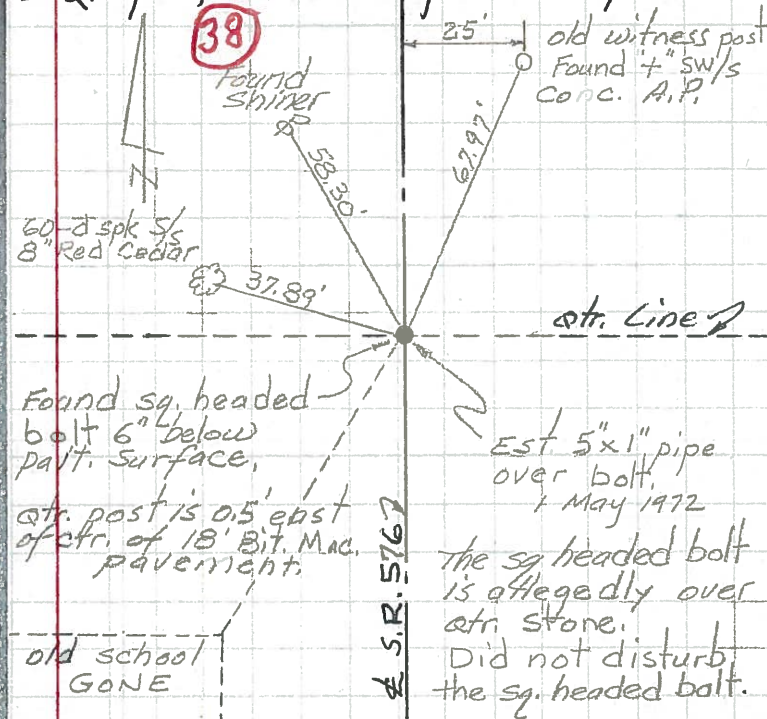 38
25'
old witness post
Found "+" SW/s
Conc. A.P.
Found
Shiner
58.30'
67.97'
N
60-d spk S/s
8" Red Cedar
37.89'
qtr. Line
Found sq. headed
bolt 6" below
pa't. surface.
qtr. post is 0.5' east
of ctr. of 18' Bit. Mac.
pavement.
Est. 5"x1" pipe
over bolt.
1 May 1972
The sq headed bolt
is allegedly over
qtr. stone.
Did not disturb
the sq. headed bolt.
℄ S.R. 576
old school
GONE